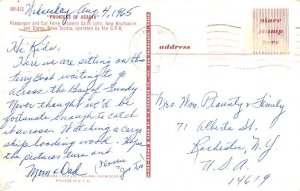 Wednesday Aug 4, 1965
"PRINCESS OF ACADIA"
Passenger and Car Ferry between Saint John, New Brunswick
and Digby, Nova Scotia, operated by the C.P.R.
Hi Kids,
Here we are sitting on this
Ferry Boat writing to go
across the Bay of Fundy
Never thought we'd be
fortunate enough to catch
it across. Watching a cargo
ship loading wood. Hope
the pictures turn out
Mom & Dad
address
place
stamp
here
Mrs Wm & Family
71 Alberta St.
Rochester, N.Y
U.S.A
14619